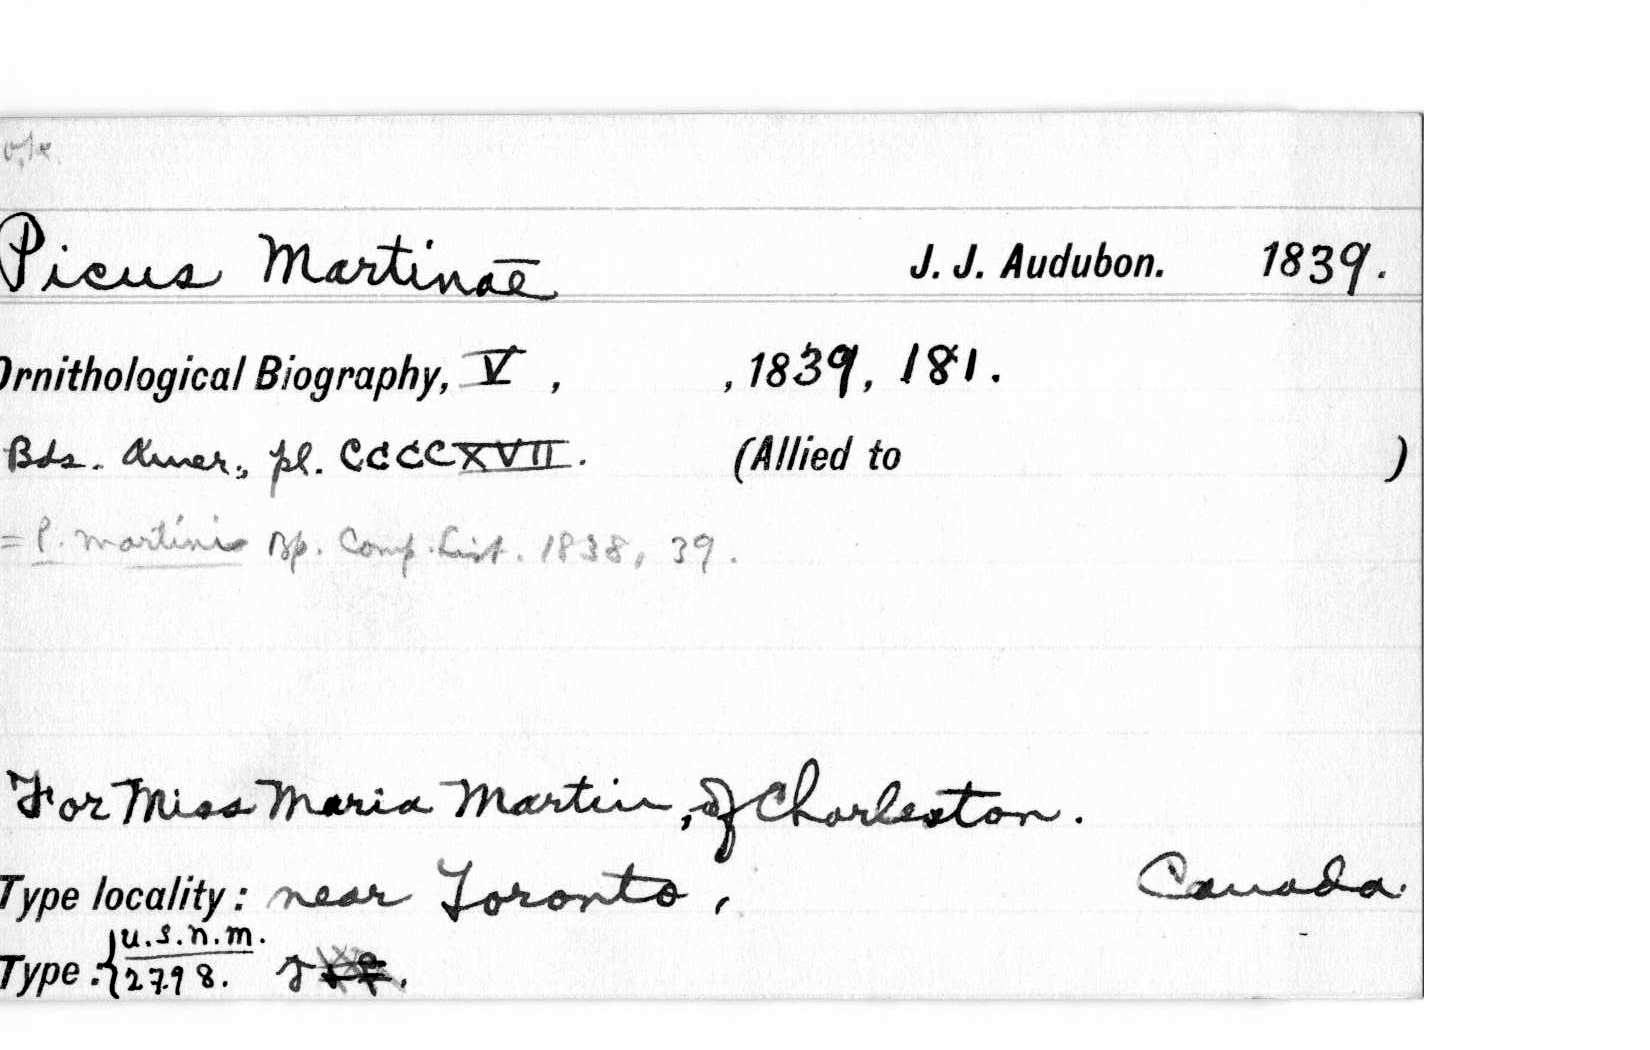 Picus Martinae J. J. Audubon. 1839.
Ornithological Biography, V, , 1839, 181.
Bds. Amer., pl. CCCCXVII. (Allied to )
= P. martinis Bp. Comp. List. 1838, 39.
For Miss Maria Martin, of Charleston.
Type locality: near Toronto, Canada.
Type: { U.S.N.M.
2798.